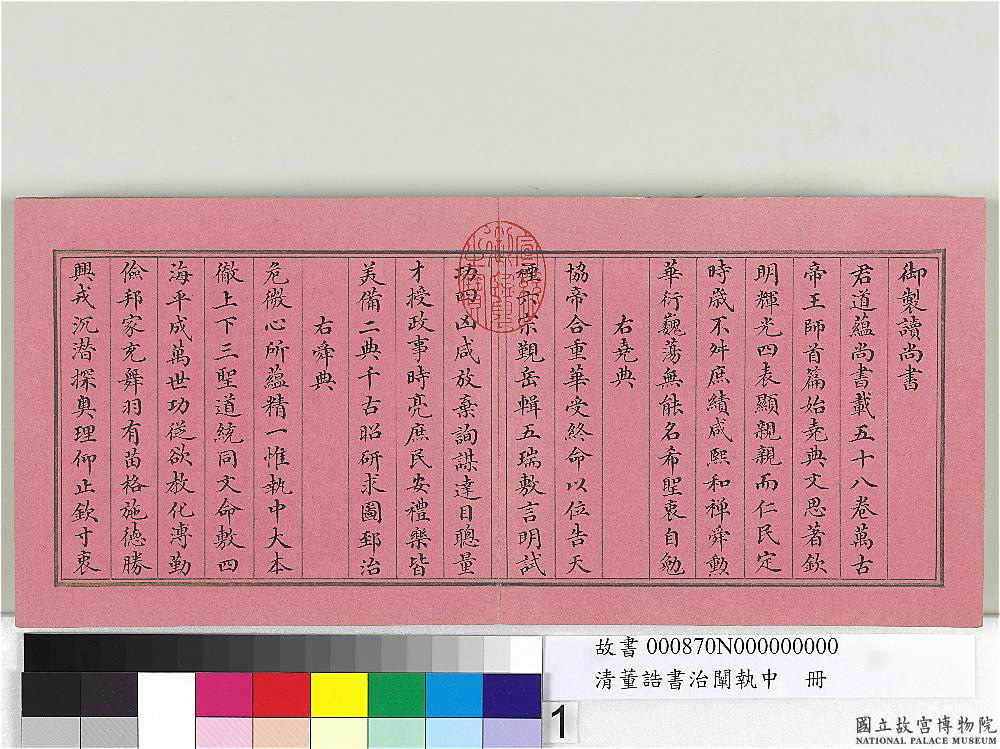 御製讀尚書
君道蘊尚書載五十八卷萬古
帝王師首篇始堯典文思著欽
明輝光四表顯親親而仁民定
時歲不舛庶績咸熙和禅舜勲
華衍巍蕩無能名希聖衷自勉
右堯典
協帝合重華受終命以位告天
禋郊宗覲岳輯五瑞敷言明試
功四凶咸放棄詢謀達目聰量
才授政事時亮庶民安禮樂皆
美備二典千古昭研求圖郅治
右舜典
危微心所蘊精一惟執中大本
徹上下三聖道統同文命敷四
海平成萬世功從欲敉化溥勤
儉邦家克舞羽有苗格施德勝
興戎沉潜探奥理仰止欽寸衷
故書 000870N000000000
清董誥書治闡執中 冊
1
國立故宮博物院
NATIONAL PALACE MUSEUM